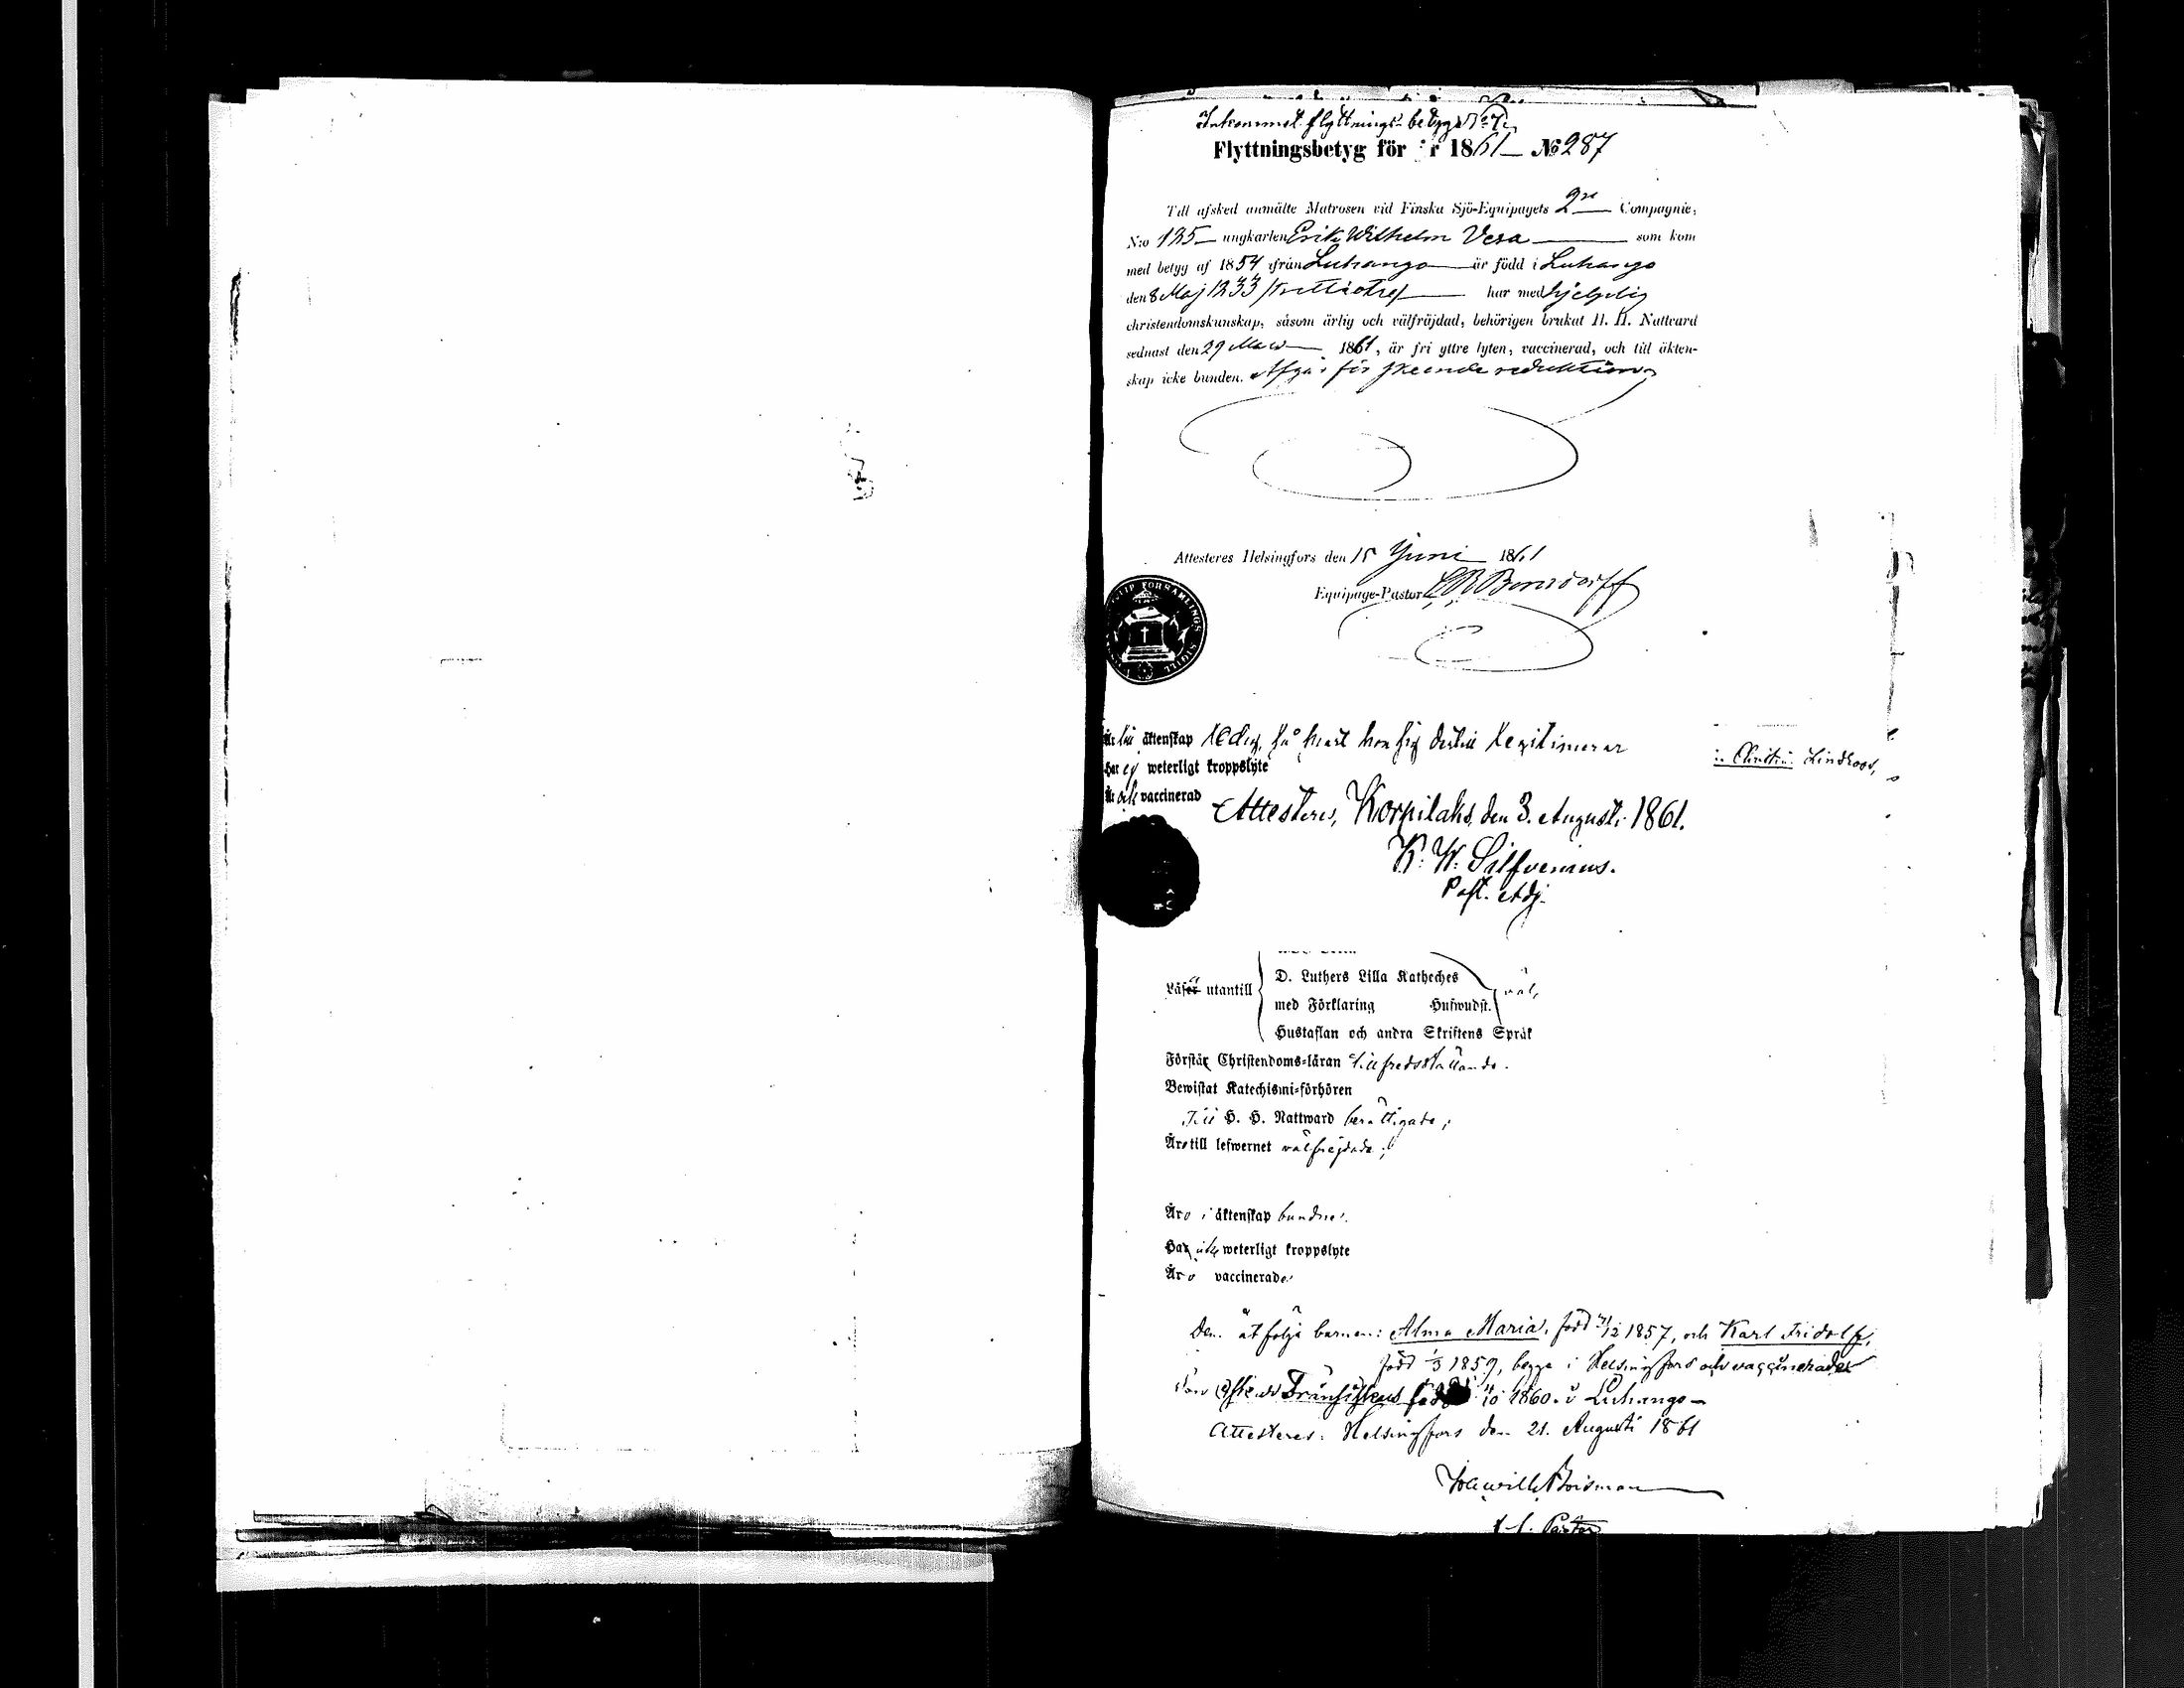 Inkommet flyttnings-betyg
Flyttningsbetyg för år 1861 No 287
Till afsked anmälte Matrosen vid Finska Sjö-Equipagets 2ra Compagnie,
N:o 125 ungkarlen Erik Wilhelm Vesa som kom
med betyg af 1854 ifrån Luhango är född i Luhango
den 8 Maj 1833 /trettiotre/ har med hjelplig
christendomskunskap, såsom ärlig och välfräjdad, behörigen brukat H. H. Nattvard
sednast den 29 Mars 1861, är fri yttre lyten, vaccinerad, och till äkten-
skap icke bunden. Afgår för skeende reduktion
Attesteres Helsingfors den 15 Juni 1861
Equipage-Pastor Bonsdorff
FÖRSAMLINGS SIGILL
Är till äktenskap ledig, så hon sig dertill legitimerar
Christin Lindroos,
Har ej weterligt kroppslyte
Är och vaccinerad
Attesteres, Korpilaks, den 3. Augusti 1861.
K. W. Silfvenius.
Past. Adj.
D. Luthers Lilla Katheches
Läser utantill väl,
med Förklaring Hufwudst.
Hustaflan och andra Skriftens Språk
Förstår Christendoms-läran tillfredsställande.
Bewistat Katechismi-förhören
Till H. H. Nattward berättigade;
Äro till lefwernet välfrejdade;
Äro i äktenskap bundne.
Har icke weterligt kroppslyte
Äro vaccinerade
Dem åtfölja barnen: Alma Maria, född 1857, och Karl Fridolf,
född 1/3 1859, begge i Helsingfors och vaccinerade
född 1860 i Luhango
Attesteres. Helsingfors den 21. Augusti 1861
Pastor